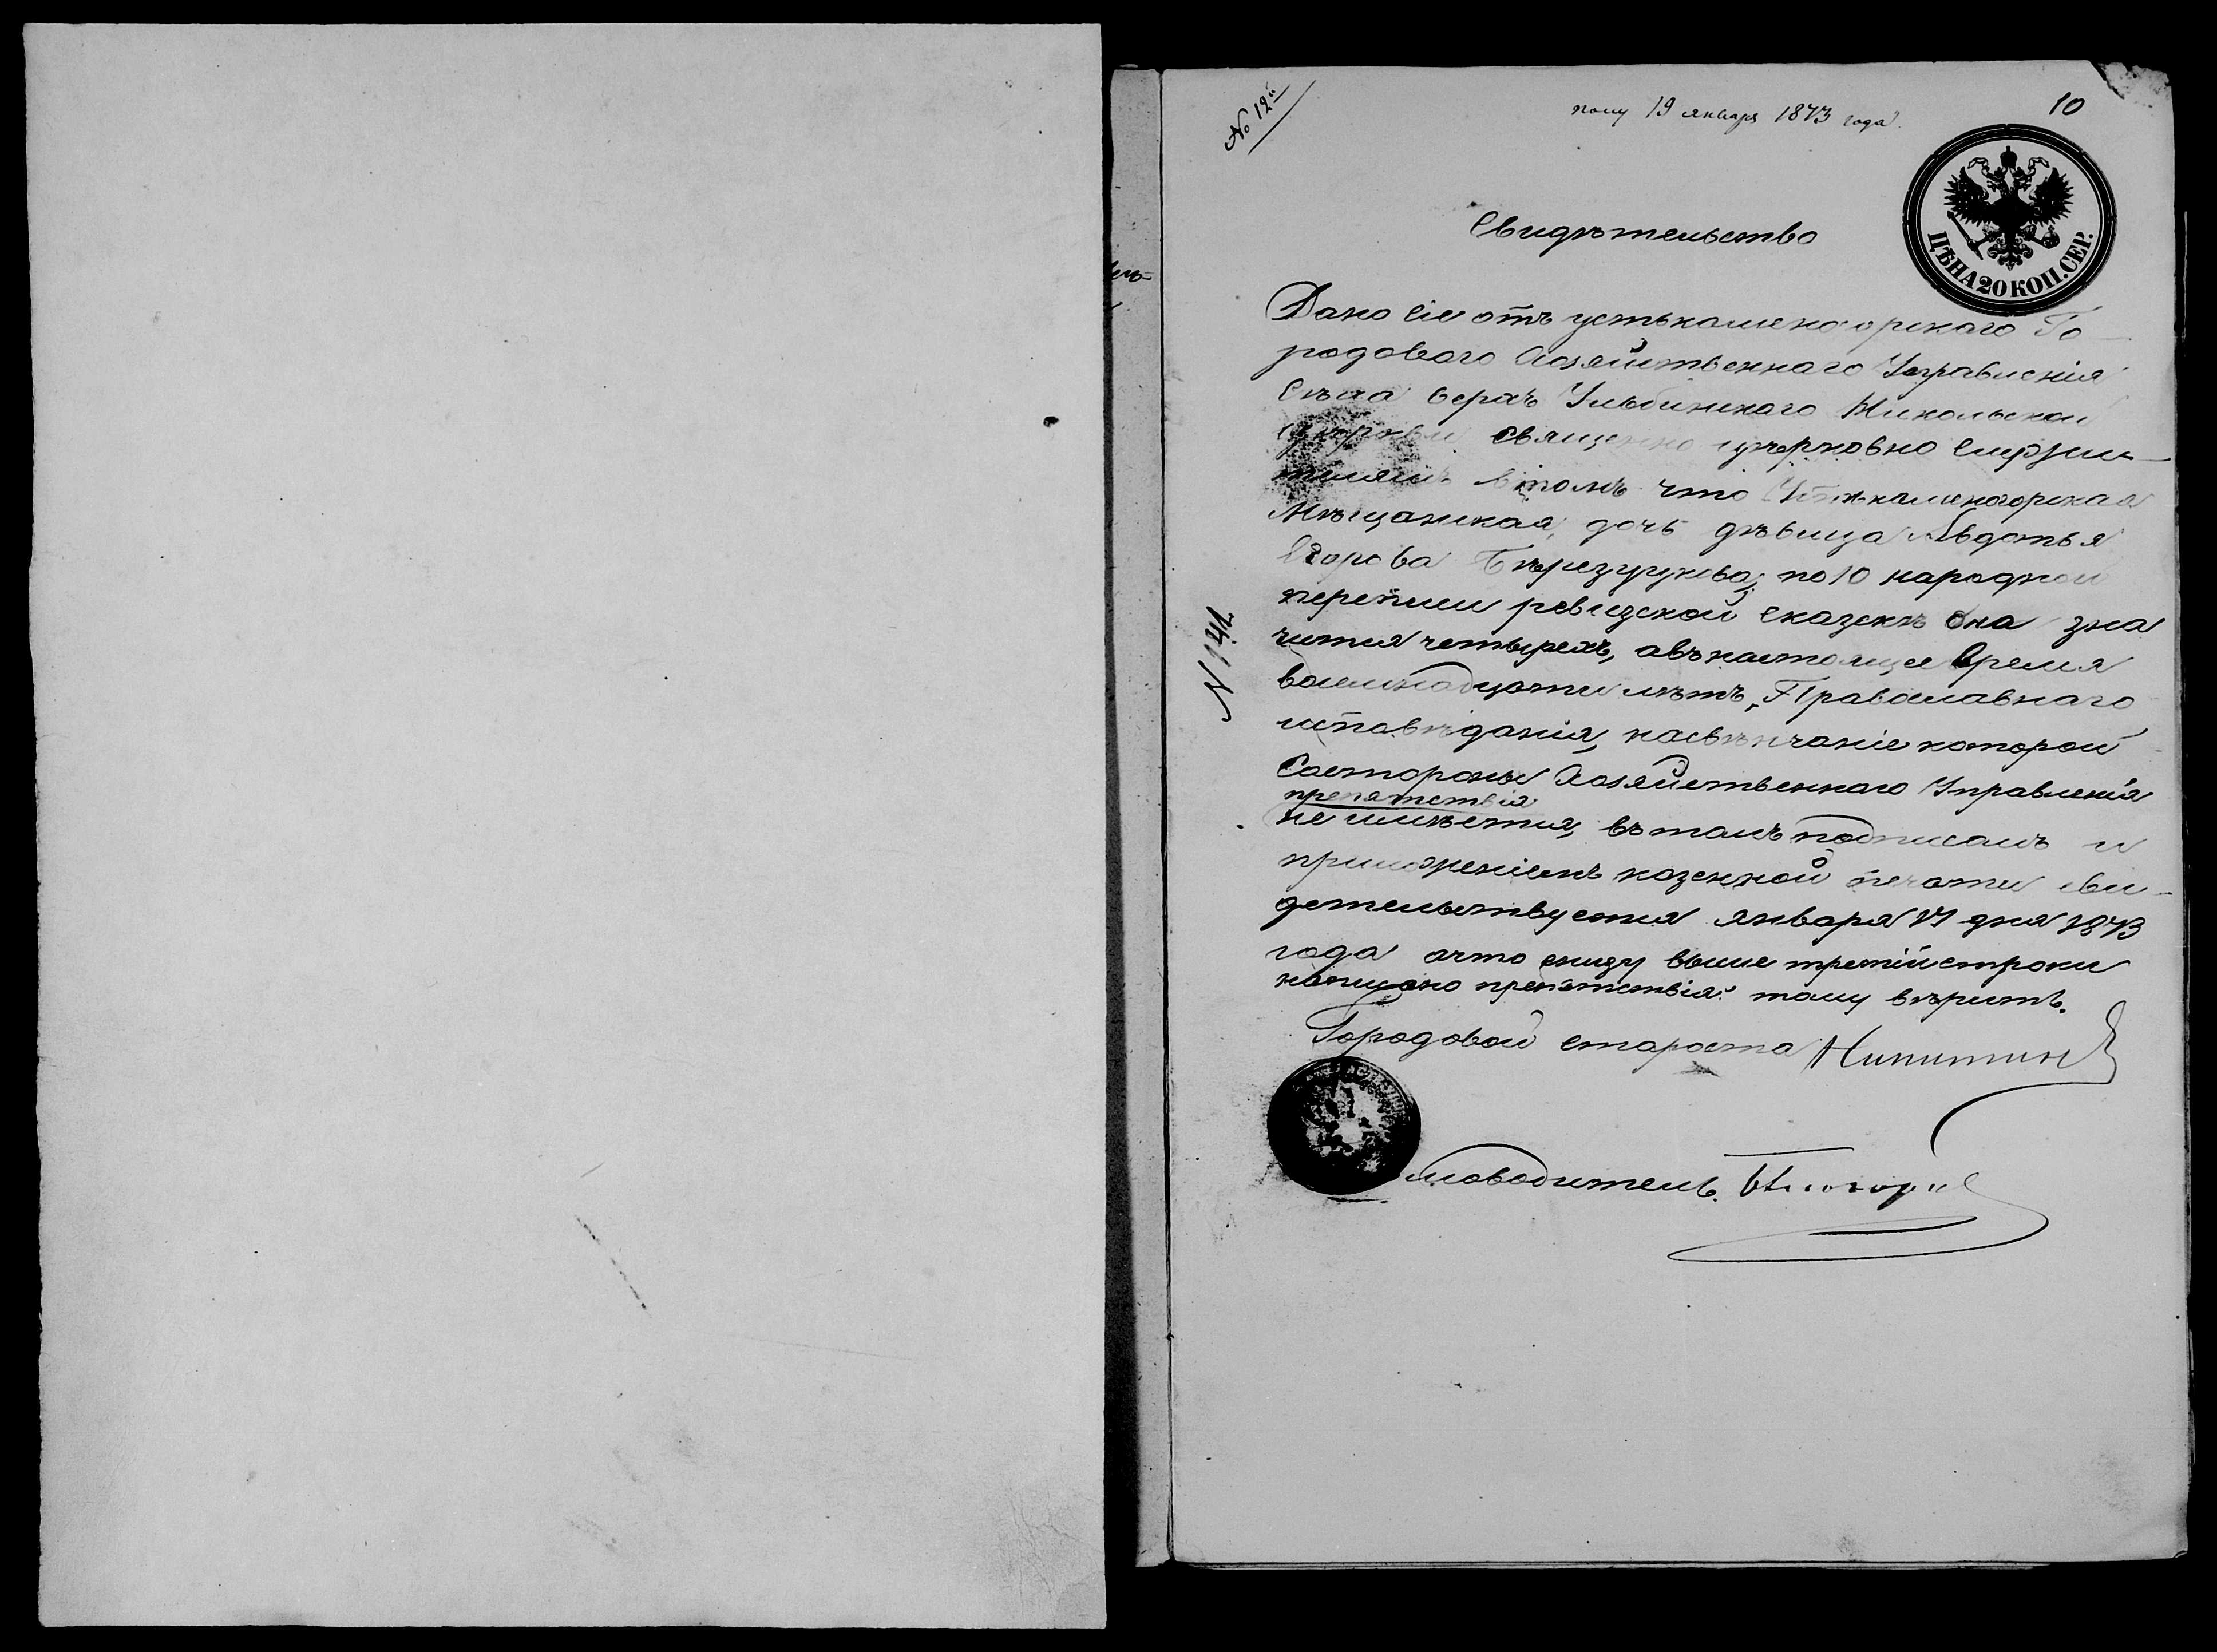 № 12й
полу 19 января 1873 года
10
ЦѢНА 20 КОП. СЕР.
Свидѣтельство
Дано сіе отъ устькаменогорскаго Го-
родоваго Хозяйственнаго Управленія
Села верхъ Ульбинскаго Никольской
церкви священно церковно служи-
телямъ втомъ что Устькаменогорская
Мѣщанская, дочь дѣвица Авдотья
Егорова по 10 народной
переписи ревизской сказскѣ она зна
чится четырехъ, авънастоящее время
восемнадцати лѣтъ, Православнаго
исповѣданія, насвѣнчаніе которой
Состороны Хозяйственнаго Управленія
препятствія
не имѣется, вътомъ подписомъ и
приложеніемъ казенной печати сви-
детельствуется января 17 дня 1873
года ачто снизу выше третій строки
написано препятствія: тому вѣрить.
Городовой староста Никитинъ
ловодитель.
№ 141